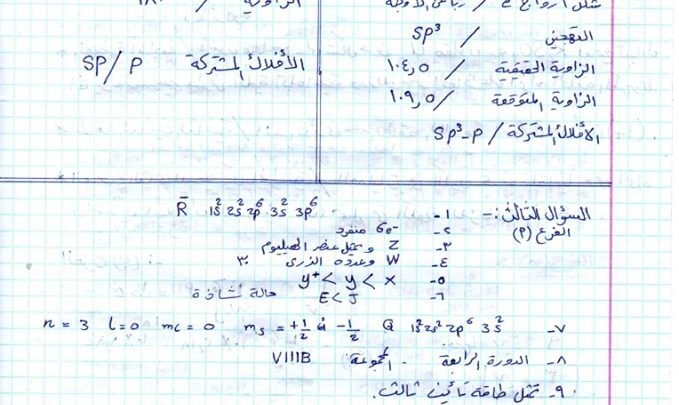 شكل أزواج e / رباعي الأوجه
التهجين / SP³
الزاوية الحقيقية / ١٠٤,٥
الزاوية المتوقعة / ١٠٩,٥
الأفلاك المشتركة / SP³-P
الزاوية ١٨٠
الأفلاك المشتركة SP/P
السؤال الثالث:-
الفرع (٢)
١- R̄ 1S² 2S² 2P⁶ 3S² 3P⁶
٢- 6e⁻ منفرد
٣- Z وتمثل عنصر الهيليوم
٤- W وعدده الذري ٣٠
٥- y⁺ < y < x
٦- E < J حالة شاذة
٧- Q 1S² 2S² 2P⁶ 3S² n = 3 l = 0 mL = 0 ms = +1/2 أو -1/2
٨- الدورة الرابعة . المجموعة VIIIB
٩- تمثل طاقة تأين ثالث.